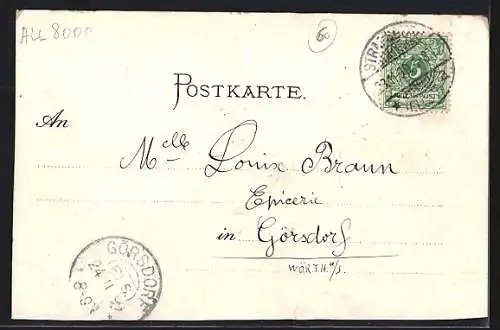 ALL 8000
60
POSTKARTE.
An
Melle Louise Braun
Epicerie
in Görsdorf
WÖRTH a/S.
5
REICHSPOST
GÖRSDORF
24
11